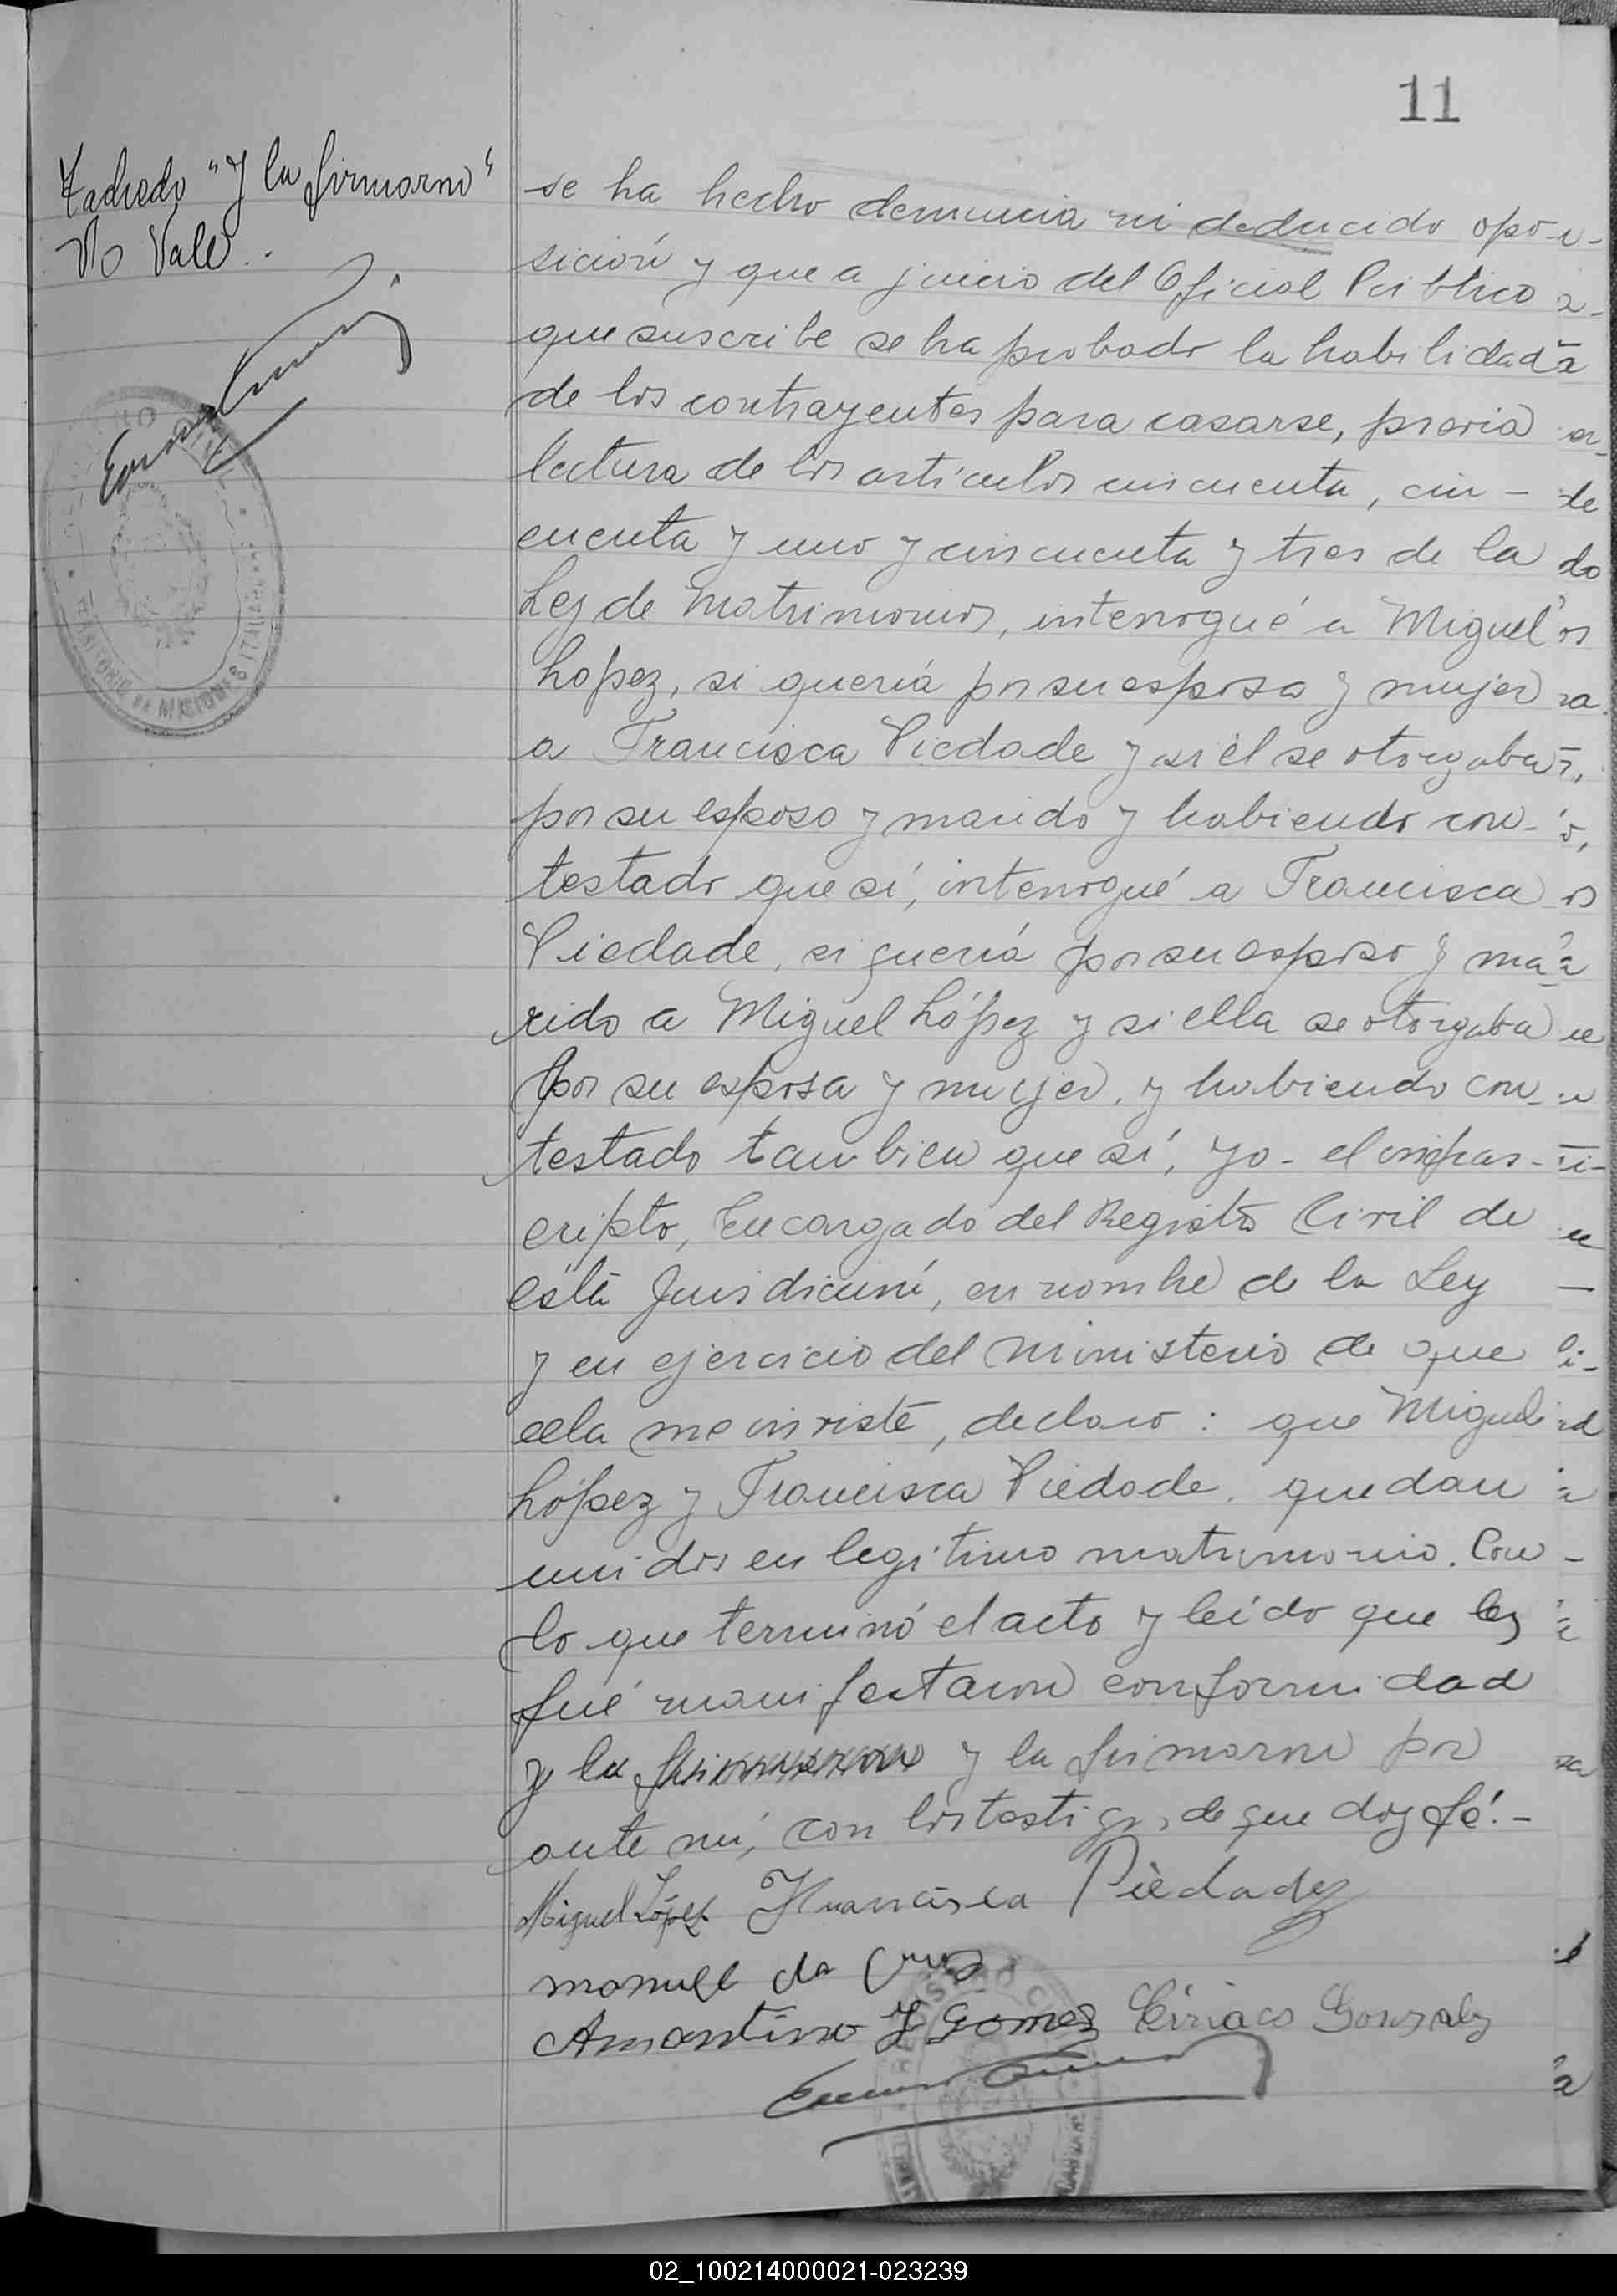 11
Tachado "y la firmaron"
No Vale..
se ha hecho denuncia ni deducido opo-
sición y que a juicio del Oficial Público
que suscribe se ha probado la habilidad
de los contrayentes para casarse, previa
lectura de los artículos cincuenta, cin-
cuenta y uno y cincuenta y tres de la
Ley de Matrimonios, interrogué a Miguel
Lopez, si quería por su esposa y mujer
a Francisca Piedade y si él se otorgaba
por su esposo y marido y habiendo con-
testado que sí, interrogué a Francisca
Piedade, si quería por su esposo y ma-
rido a Miguel López y si ella se otorgaba
por su esposa y mujer, y habiendo con-
testado tambien que sí, yo - el infras-
cripto, Encargado del Registro Civil de
ésta Jurisdicción, en nombre de la Ley
y en ejercicio del ministerio de que
ella me inviste, declaro: que Miguel
López y Francisca Piedade, quedan
unidos en legítimo matrimonio. Con
lo que terminó el acto y leído que les
fué manifestaron conformidad
y la firmaron y la firmaron por
ante mí, con los testigos, de que doy fé.-
Miguel López Francisca Piedadez
manuel da Cruz
Amantino J Gomez Ciriaco Gonzalez
TERRITORIO DE MISIONES
02_100214000021-023239